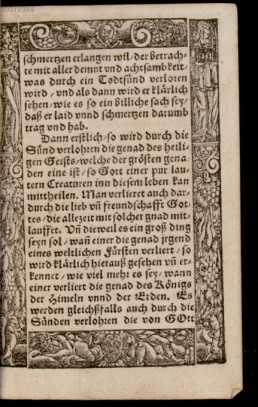 schmertzen erlangen wil/ der betrach-
te mit aller demut vnd achtsambkeit/
was durch ein Todtsünd verloren
wird / vnd als dann wird er klärlich
sehen/ wie es so ein billiche sach sey/
daß er laid vnnd schmertzen darumb
trag vnd hab.
Dann erstlich/ so wird durch die
Sünd verlohren die genad des heili-
gen Geists/ welche der grösten gena-
den eine ist/ so Gott einer pur lau-
tern Creaturen inn disem leben kan
mittheilen. Man verlieret auch dar-
durch die lieb vñ freundschafft Got-
tes/ die allezeit mit solcher gnad mit-
lauffet. Vñ dieweil es ein groß ding
seyn sol / wañ einer die genad jrgend
eines weltlichen Fürsten verliert / so
wird klärlich hierauß gesehen vñ er-
kennet / wie viel mehr es sey/ wann
einer verliert die genad des Königs
der Himeln vnnd der Erden. Es
werden gleichßfalls auch durch die
Sünden verlohren die von GOtt